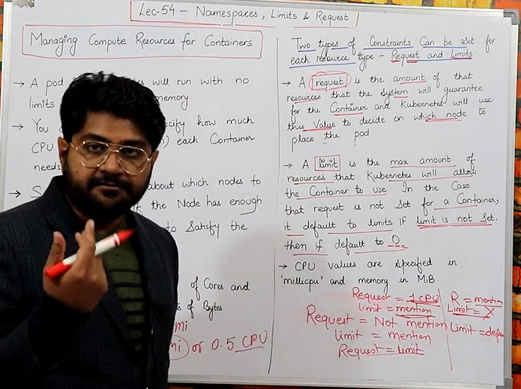 Lec-54 – Namespaces, Limits & Request
Managing Compute Resources for Containers
→ A pod
will run with no
limits
memory
→ You
specify how much
CPU
each Container
needs
about which nodes to
the Node has enough
to Satisfy the
of Cores and
of Bytes
Mi
Mi) or 0.5 CPU
Two types of Constraints Can be set for
each resource type - Request and Limits
→ A request is the amount of that
resources that the system will guarantee
for the Container and Kubernetes will use
this Value to decide on which node to
place the pod
→ A limit is the max amount of
resources that Kubernetes will allow
the Container to use. In the Case
that request is not set for a Container,
it default to limits. If limit is not set,
then if default to 0.
→ CPU values are specified in
'millicpu' and memory in MiB
Request = 1 CPU
limit = mention
Request = Not mention
limit = mention
Request = limit
R = mention
Limit = X
Limit = defau